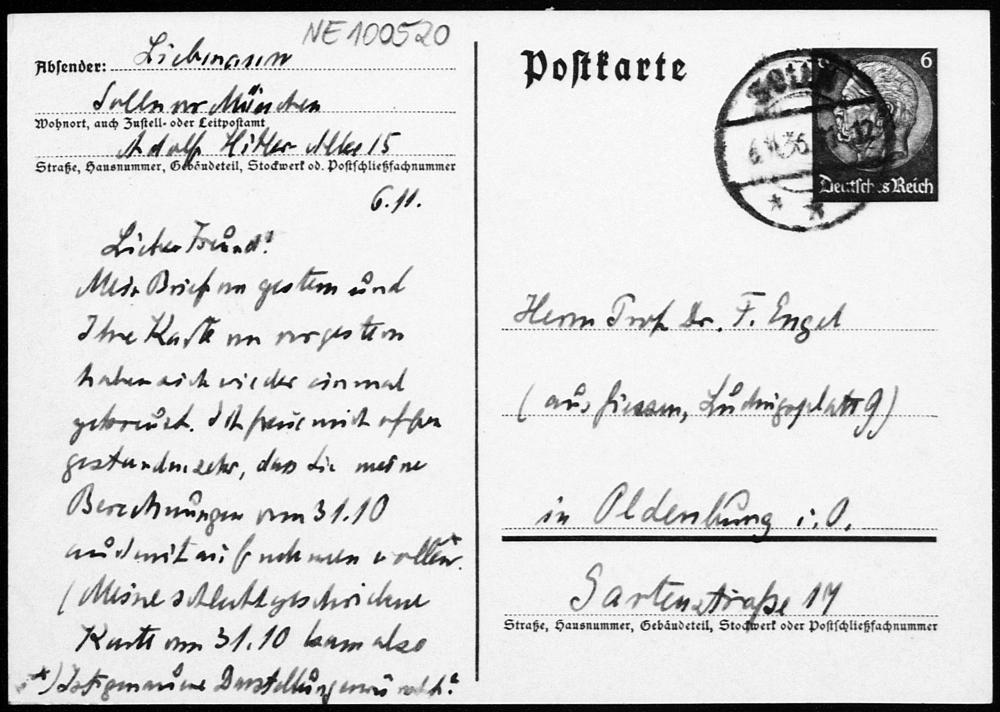 NE 100520
Absender: Liebmann
Solln vor München
Wohnort, auch Zustell- oder Leitpostamt
Adolf Hitler Allee 15
Straße, Hausnummer, Gebäudeteil, Stockwerk od. Postschließfachnummer
6.11.
Lieber Freund!
Mein Brief von gestern und
Ihre Karte von vorgestern
haben sich wieder einmal
gekreuzt. Ich freue mich offen
gestanden sehr, dass Sie meine
Berechnungen vom 31.10
auch mit aufnehmen wollen*.
(Meine schlecht geschriebene
Karte vom 31.10 kam also
*) Ist genauere Darstellung erwünscht?
Postkarte
SOLLN
6.11.36. 12
6
Deutsches Reich
Herrn Prof. Dr. F. Engel
(aus Giessen, Ludwigsplatz 9)
in Oldenburg i. O.
Gartenstraße 14
Straße, Hausnummer, Gebäudeteil, Stockwerk oder Postschließfachnummer